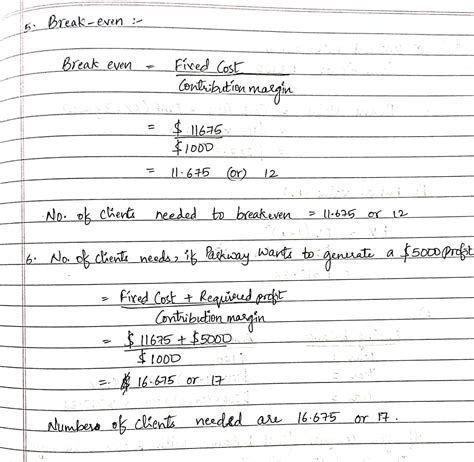 5. Break-even :-
Break even = Fixed Cost
Contribution margin
= $ 11675
$ 1000
= 11.675 (or) 12
No. of Clients needed to breakeven = 11.675 or 12
6. No. of Clients needs, if Parkway wants to generate a $5000 profit
= Fixed Cost + Required profit
Contribution margin
= $ 11675 + $5000
$ 1000
= 16.675 or 17
Numbers of Clients needed are 16.675 or 17.